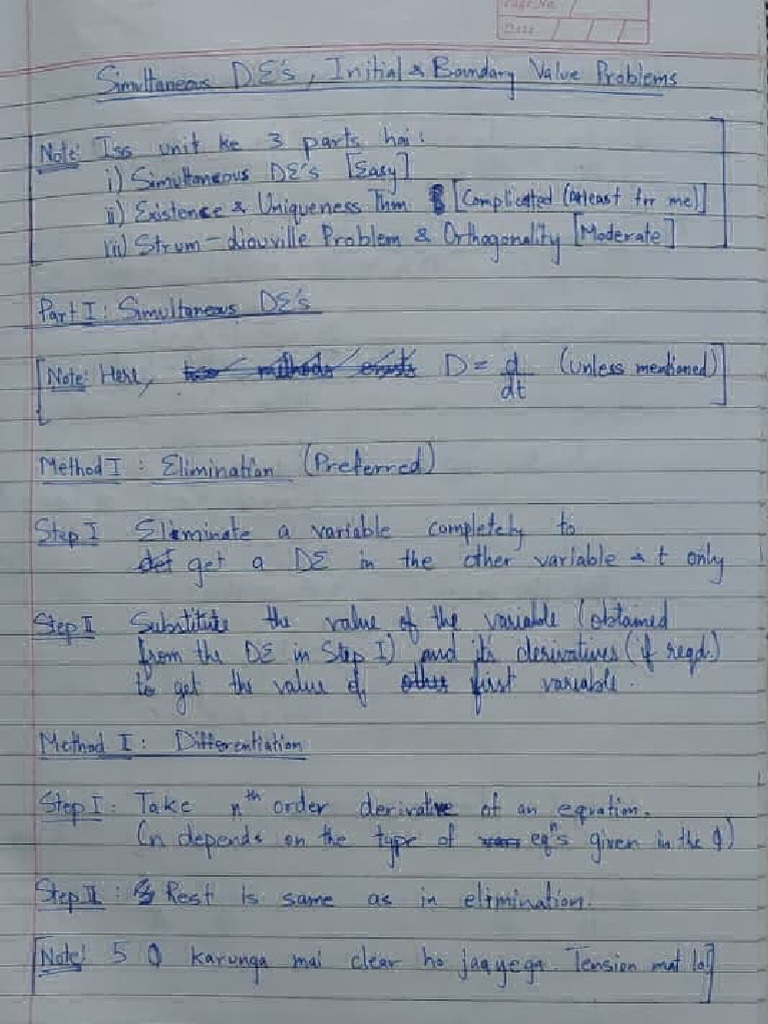 Page No.
Date
Simultaneous DE's, Initial & Boundary Value Problems
Note: Iss unit ke 3 parts hai:
i) Simultaneous DE's [Easy]
ii) Existence & Uniqueness Thm [Complicated (Atleast for me)]
iii) Strum-Liouville Problem & Orthogonality [Moderate]
Part I: Simultaneous DE's
[Note: Here, D = d/dt (unless mentioned)]
Method I: Elimination (Preferred)
Step I Eliminate a variable completely to
get a DE in the other variable & t only
Step II Substitute the value of the variable (obtained
from the DE in Step I) and its derivatives (if reqd.)
to get the value of first variable.
Method I: Differentiation
Step I: Take nth order derivative of an equation.
(n depends on the type of eqn's given in the Q)
Step II: Rest is same as in elimination.
[Note: 5 Q karunga mai clear ho jaayega. Tension mat lo.]